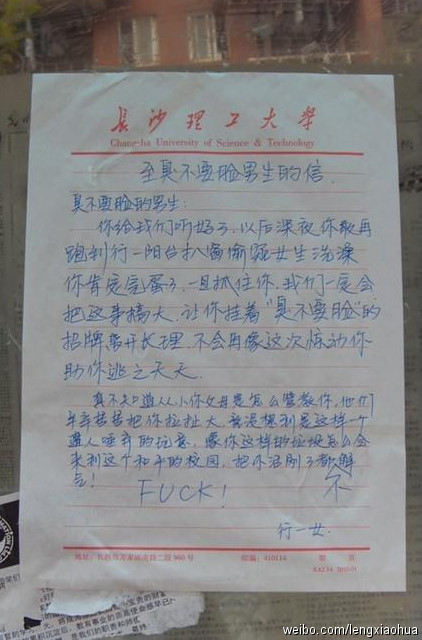 长沙理工大学
Changsha University of Science & Technology
至臭不要脸男生的信.
臭不要脸的男生:
你给我们听好了,以后深夜你敢再
跑到行一阳台扒窗偷窥女生洗澡
你肯定完蛋了,一旦抓住你,我们一定会
把这事搞大,让你挂着“臭不要脸”的
招牌离开长理,不会再像这次惊动你
助你逃之夭夭.
真不知道从小你父母是怎么管教你,他们
辛辛苦苦把你拉扯大,竟没想到是这样一个
遭人唾弃的玩意,像你这样的垃圾怎么会
来到这个和平的校园,把你活剐了都不解
气!
FUCK!
行一女.
地址:长沙市 路二段960号 邮编:410114
weibo.com/lengxiaohua